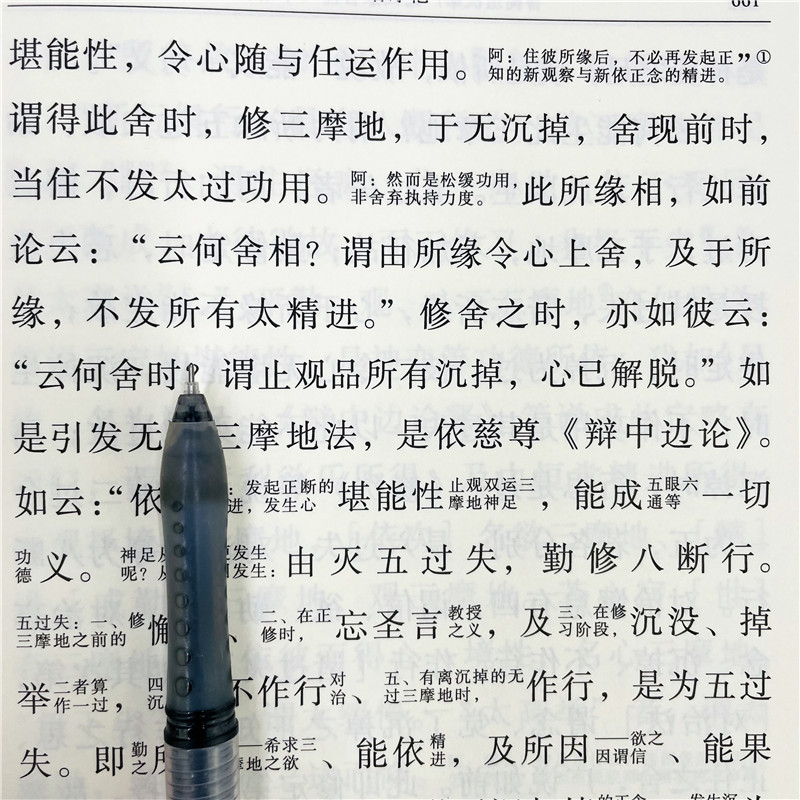 661
堪能性，令心随与任运作用。阿：住彼所缘后，不必再发起正知的新观察与新依正念的精进。”①
谓得此舍时，修三摩地，于无沉掉，舍现前时，
当住不发太过功用。阿：然而是松缓功用，非舍弃执持力度。此所缘相，如前
论云：“云何舍相？谓由所缘令心上舍，及于所
缘，不发所有太精进。”修舍之时，亦如彼云：
“云何舍时？谓止观品所有沉掉，心已解脱。”如
是引发无三摩地法，是依慈尊《辩中边论》。
如云：“依：发起正断的进，发生心堪能性止观双运三摩地神足，能成五眼六通等一切
功德义。神足从呢？发生：由灭五过失，勤修八断行。
五过失：一、修三摩地之前的懒、二、在正修时，忘圣言教授之义，及三、在修习阶段，沉没、掉
举二者算作一过，四沉不作行对治、五、有离沉掉的无过三摩地时，作行，是为五过
失。即勤之所——希求三摩地之欲、能依精进，及所因——欲之因谓信、能果